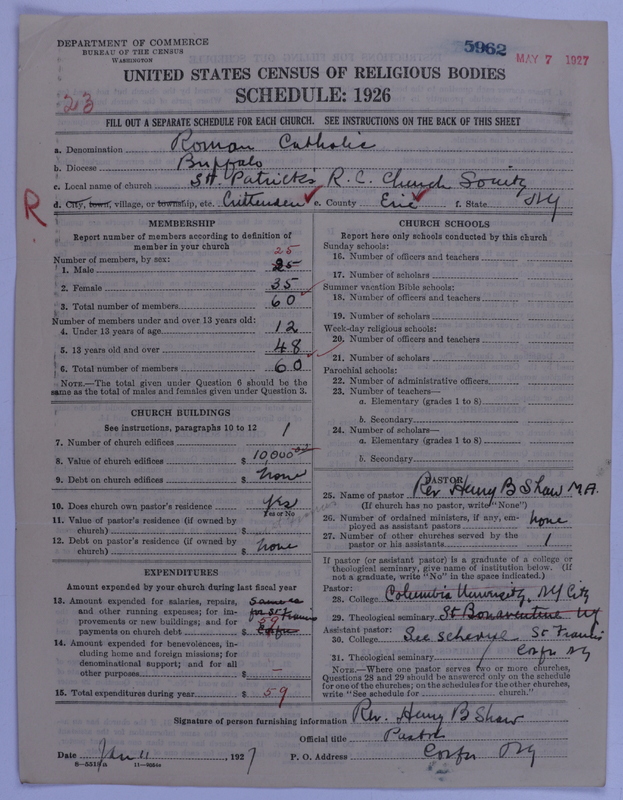 DEPARTMENT OF COMMERCE
BUREAU OF THE CENSUS
WASHINGTON
5962
MAY 7 1927
UNITED STATES CENSUS OF RELIGIOUS BODIES
SCHEDULE: 1926
23
FILL OUT A SEPARATE SCHEDULE FOR EACH CHURCH. SEE INSTRUCTIONS ON THE BACK OF THIS SHEET
a. Denomination Roman Catholic
b. Diocese Buffalo
c. Local name of church St. Patricks R. C. Church Society
d. City, town, village, or township, etc. Crittenden e. County Erie f. State NY
R.
MEMBERSHIP
Report number of members according to definition of member in your church
Number of members, by sex: 25
1. Male 25
2. Female 35
3. Total number of members 60
Number of members under and over 13 years old:
4. Under 13 years of age 12
5. 13 years old and over 48
6. Total number of members 60
NOTE.—The total given under Question 6 should be the
same as the total of males and females given under Question 3.
CHURCH BUILDINGS
See instructions, paragraphs 10 to 12
7. Number of church edifices 1
8. Value of church edifices $ 10000
9. Debt on church edifices $ none
10. Does church own pastor's residence Yes
Yes or No
11. Value of pastor's residence (if owned by
church) $
12. Debt on pastor's residence (if owned by
church) $ none
EXPENDITURES
Amount expended by your church during last fiscal year
13. Amount expended for salaries, repairs,
and other running expenses; for im-
provements or new buildings; and for
payments on church debt $ Same as for St Francis Corfu 59
14. Amount expended for benevolences, in-
cluding home and foreign missions; for
denominational support; and for all
other purposes $ —
15. Total expenditures during year $ 59
CHURCH SCHOOLS
Report here only schools conducted by this church
Sunday schools:
16. Number of officers and teachers
17. Number of scholars
Summer vacation Bible schools:
18. Number of officers and teachers
19. Number of scholars
Week-day religious schools:
20. Number of officers and teachers
21. Number of scholars
Parochial schools:
22. Number of administrative officers
23. Number of teachers—
a. Elementary (grades 1 to 8)
b. Secondary
24. Number of scholars—
a. Elementary (grades 1 to 8)
b. Secondary
PASTOR
25. Name of pastor Rev Henry B Shaw M.A.
(If church has no pastor, write "None")
26. Number of ordained ministers, if any, em-
ployed as assistant pastors none
27. Number of other churches served by the
pastor or his assistants 1
If pastor (or assistant pastor) is a graduate of a college or
theological seminary, give name of institution below. (If
not a graduate, write "No" in the space indicated.)
Pastor:
28. College Columbia University, NY City
29. Theological seminary St Bonaventure NY
Assistant pastor: See schedule St Francis
30. College Corfu NY
31. Theological seminary
NOTE.—Where one pastor serves two or more churches,
Questions 28 and 29 should be answered only on the schedule
for one of the churches; on the schedules for the other churches,
write "See schedule for church."
Signature of person furnishing information Rev. Henry B Shaw
Official title Pastor
Date Jan 11, 1927 P. O. Address Corfu NY
8—5519a 11—9564a